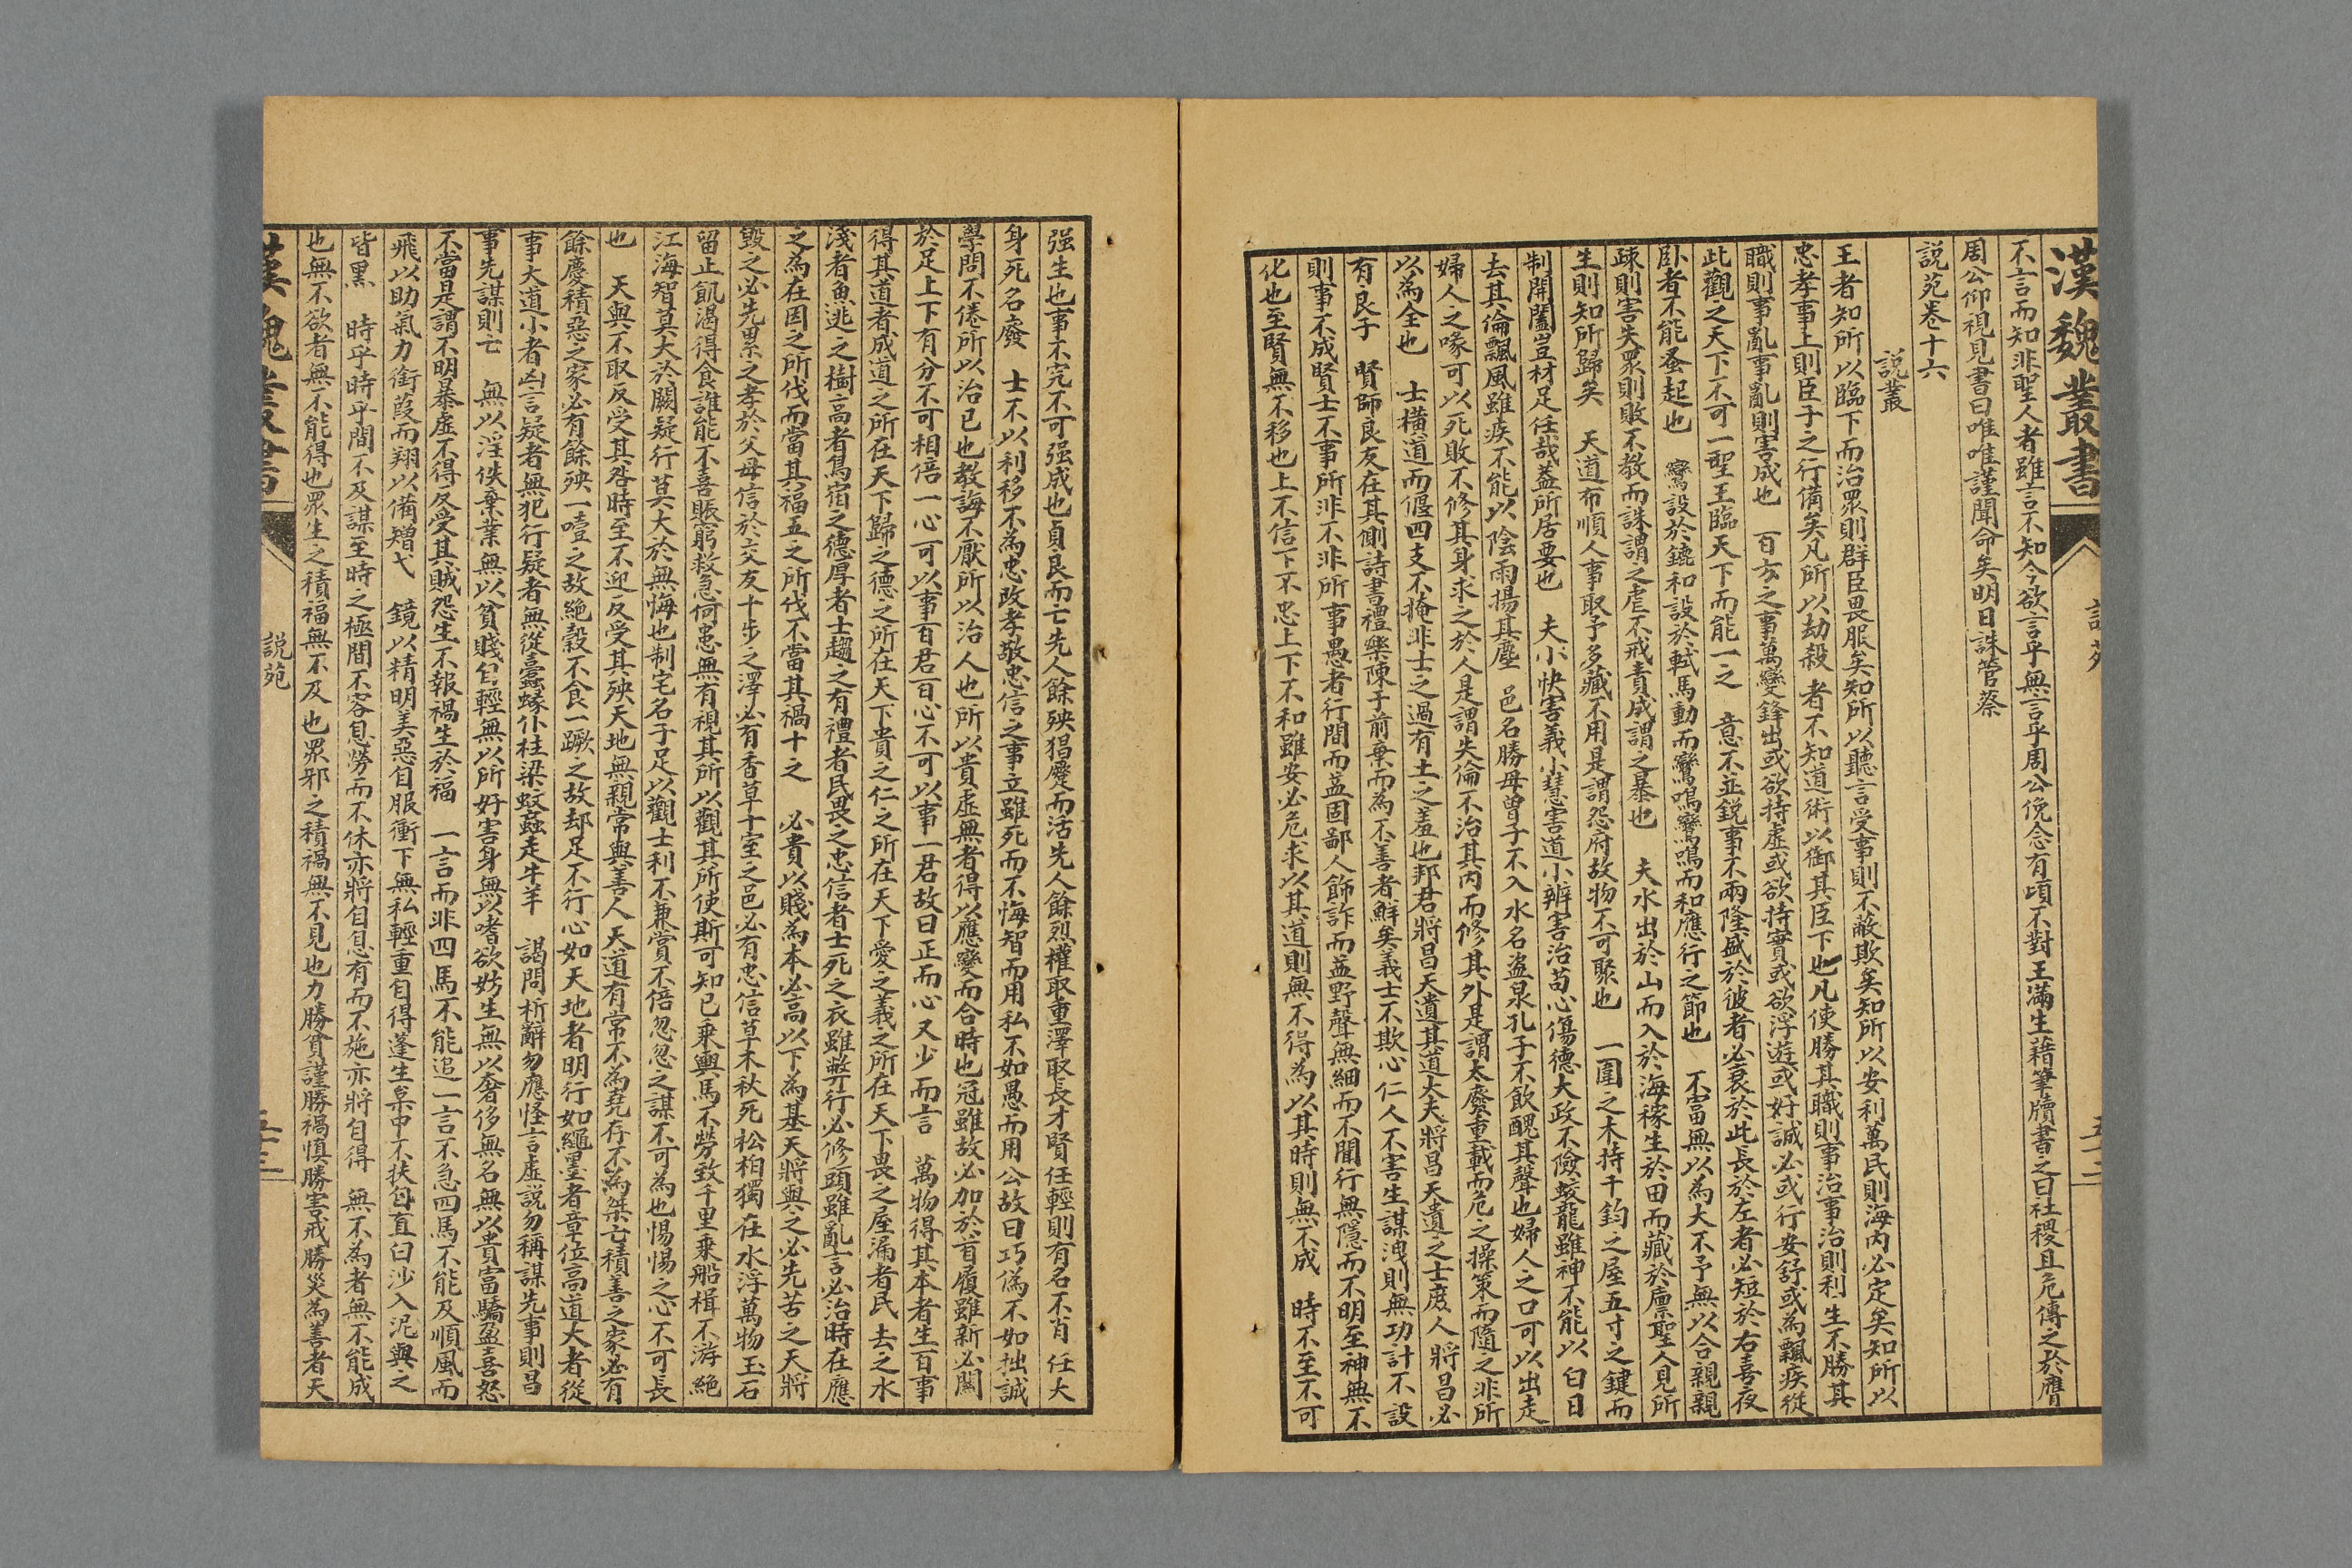 漢魏叢書
不言而知非聖人者雖言不知今欲言乎無言乎周公俛念有頃不對王滿生藉筆牘書之曰社稷且危傅之於膺
周公仰視見書曰唯唯謹聞命矣明日誅管蔡
説苑卷十六
説叢
王者知所以臨下而治眾則群臣畏服矣知所以聽言受事則不蔽欺矣知所以安利萬民則海內必定矣知所以
忠孝事上則臣子之行備矣凡所以劫殺者不知道術以御其臣下也凡使勝其職則事治事治則利生不勝其
職則事亂事亂則害成也 百方之事萬變鋒出或欲持虛或欲持實或欲浮遊或好誠必或行安舒或為飄疾從
此觀之天下不可一聖王臨天下而能一之 意不並銳事不兩隆盛於彼者必衰於此長於左者必短於右喜夜
臥者不能蚤起也 鸞設於鑣和設於軾馬動而鸞鳴鸞鳴而和應行之節也 不富無以為大不予無以合親親
疎則害失眾則敗不教而誅謂之虐不戒責成謂之暴也 夫水出於山而入於海稼生於田而藏於廩聖人見所
生則知所歸矣 天道布順人事取予多藏不用是謂怨府故物不可聚也 一圍之木持千鈞之屋五寸之鍵而
制開闔豈材足任哉蓋所居要也 夫小快害義小慧害道小辨害治苟心傷德大政不儉蛟龍雖神不能以白日
去其倫飄風雖疾不能以陰雨揚其塵 邑名勝母曾子不入水名盜泉孔子不飲醜其聲也婦人之口可以出走
婦人之喙可以死敗不修其身求之於人是謂失倫不治其內而修其外是謂大廢重載而危之操策而隨之非所
以為全也 士橫道而偃四支不掩非士之過有土之羞也邦君將昌天遺其道大夫將昌天遺之士庶人將昌必
有良子 賢師良友在其側詩書禮樂陳于前棄而為不善者鮮矣義士不欺心仁人不害生謀洩則無功計不設
則事不成賢士不事所非不非所事愚者行間而益固鄙人飾詐而益野聲無細而不聞行無隱而不明至神無不
化也至賢無不移也上不信下不忠上下不和雖安必危求以其道則無不得為以其時則無不成 時不至不可
强生也事不究不可强成也貞良而亡先人餘殃猖蹷而活先人餘烈權取重澤取長才賢任輕則有名不肖任大
身死名廢 士不以利移不為忠政孝敬忠信之事立雖死而不悔智而用私不如愚而用公故曰巧偽不如拙誠
學問不倦所以治己也教誨不厭所以治人也所以貴虛無者得以應變而合時也冠雖故必加於首履雖新必關
於足上下有分不可相倍一心可以事百君百心不可以事一君故曰正而心又少而言 萬物得其本者生百事
得其道者成道之所在天下歸之德之所在天下貴之仁之所在天下愛之義之所在天下畏之屋漏者民去之水
淺者魚逃之樹高者鳥宿之德厚者士趨之有禮者民畏之忠信者士死之衣雖弊行必修頭雖亂言必治時在應
之為在因之所伐而當其福五之所伐不當其禍十之 必貴以賤為本必高以下為基天將與之必先苦之天將
毀之必先累之孝於父母信於交友十步之澤必有香草十室之邑必有忠信草木秋死松柏獨在水浮萬物玉石
留止飢渴得食誰能不喜賑窮救急何患無有視其所以觀其所使斯可知已乘輿馬不勞致千里乘船楫不游絕
江海智莫大於闕疑行莫大於無悔也制宅名子足以觀士利不兼賞不倍忽忽之謀不可為也惕惕之心不可長
也 天與不取反受其咎時至不迎反受其殃天地無親常與善人天道有常不為堯存不為桀亡積善之家必有
餘慶積惡之家必有餘殃一噎之故絕穀不食一蹶之故却足不行心如天地者明行如繩墨者章位高道大者從
事大道小者凶言疑者無犯行疑者無從蠹蝝仆柱梁蚊䖟走牛羊 謁問析辭勿應怪言虛説勿稱謀先事則昌
事先謀則亡 無以淫佚棄業無以貧賤自輕無以所好害身無以嗜欲妨生無以奢侈無名無以貴富驕盈喜怒
不當是謂不明暴虐不得反受其賊怨生不報禍生於福 一言而非四馬不能追一言不急四馬不能及順風而
飛以助氣力銜葭而翔以備矰弋 鏡以精明美惡自服衡下無私輕重自得蓬生枲中不扶自直白沙入泥與之
皆黑 時乎時乎間不及謀至時之極間不容息勞而不休亦將自息有而不施亦將自得 無不為者無不能成
也無不欲者無不能得也眾生之積福無不及也眾邪之積禍無不見也力勝貧謹勝禍慎勝害戒勝災為善者天
説苑